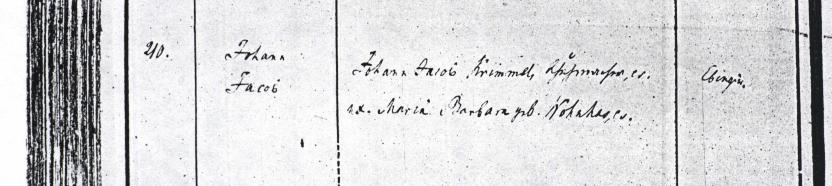 210.
Johann
Jacob
Johann Jacob Krimmel, Schuhmacher, es.
ux. Maria Barbara geb. es.
Ebingen.